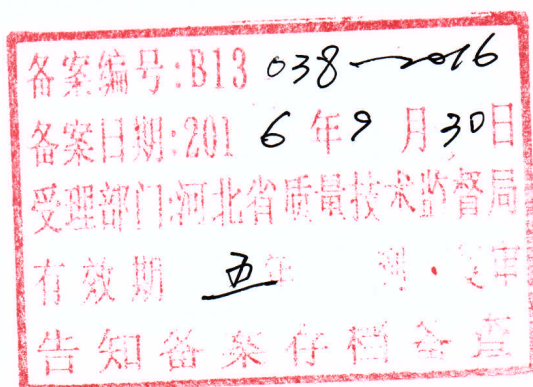 备案编号:B13 038—2016
备案日期:2016年9月30日
受理部门:河北省质量技术监督局
有效期 五年 复审
告知备案存档备查